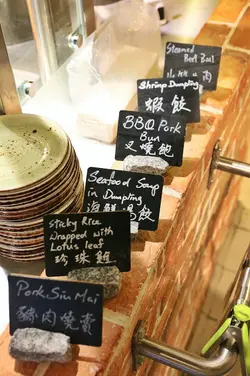 Steamed
Beef Ball
山竹牛肉
Shrimp Dumpling
蝦餃
BBQ Pork
Bun
叉燒飽
Seafood Soup
in Dumpling
海鮮湯餃
Sticky Rice
Wrapped with
Lotus leaf
珍珠雞
Pork Siu Mai
豬肉燒賣